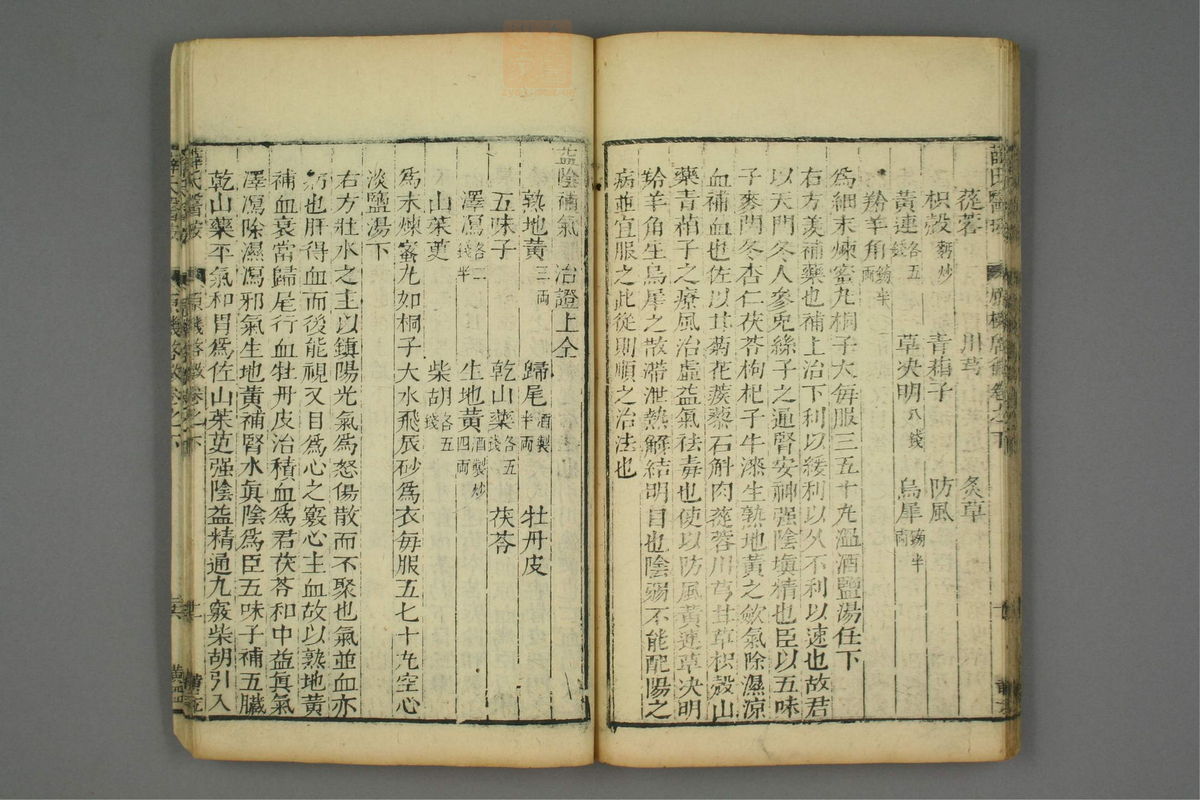 蓯蓉 川芎 炙草
枳殼麪炒 青葙子 防風
黃連各五錢 草决明八錢 烏犀鎊半兩
羚羊角鎊半兩
爲細末煉蜜丸桐子大每服三五十丸溫酒鹽湯任下
右方羡補藥也補上治下利以緩利以久不利以速也故君
以天門冬人參兎絲子之通腎安神强陰塡精也臣以五味
子麥門冬杏仁茯苓枸杞子牛漆生熟地黃之歛氣除濕凉
血補血也佐以甘菊花蒺藜石斛肉蓯蓉川芎甘草枳殼山
藥青葙子之療風治虛益氣祛毒也使以防風黃連草决明
羚羊角生烏犀之散滯泄熱解結明目也陰弱不能配陽之
病並宜服之此從則順之治法也
益陰補氣 治證上仝
熟地黃三兩 歸尾酒製半兩 牡丹皮
五味子 乾山藥各五錢 茯苓
澤瀉各二錢半 生地黃酒製炒四兩
山茱萸 柴胡各五錢
爲末煉蜜丸如桐子大水飛辰砂爲衣每服五七十丸空心
淡鹽湯下
右方壯水之主以鎮陽光氣爲怒傷散而不聚也氣並血亦
病也肝得血而後能視又目爲心之竅心主血故以熟地黃
補血衰當歸尾行血牡丹皮治積血爲君茯苓和中益眞氣
澤瀉除濕瀉邪氣生地黃補腎水眞陰爲臣五味子補五臟
乾山藥平氣和胃爲佐山茱萸强陰益精通九竅柴胡引入
薛氏醫按 原機啓微卷之下